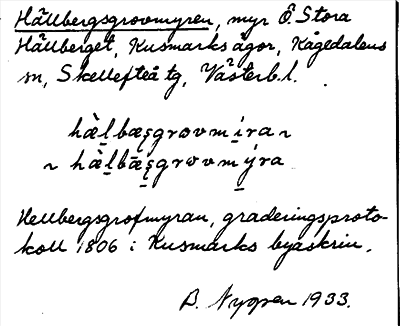 Hällbergsgrovmyren, myr Ö. Stora
Hällberget, Kusmarks ägor, Kågedalens
sn, Skellefteå tg, Västerb.l.
hæ̀l̥bæşgrovmíra ~
~ hæ̀l̥bǣşgrovmýra
Hellbergsgrofmyran, graderingsproto-
koll 1806 i Kusmarks byaskrin.
B. Nygren 1933.